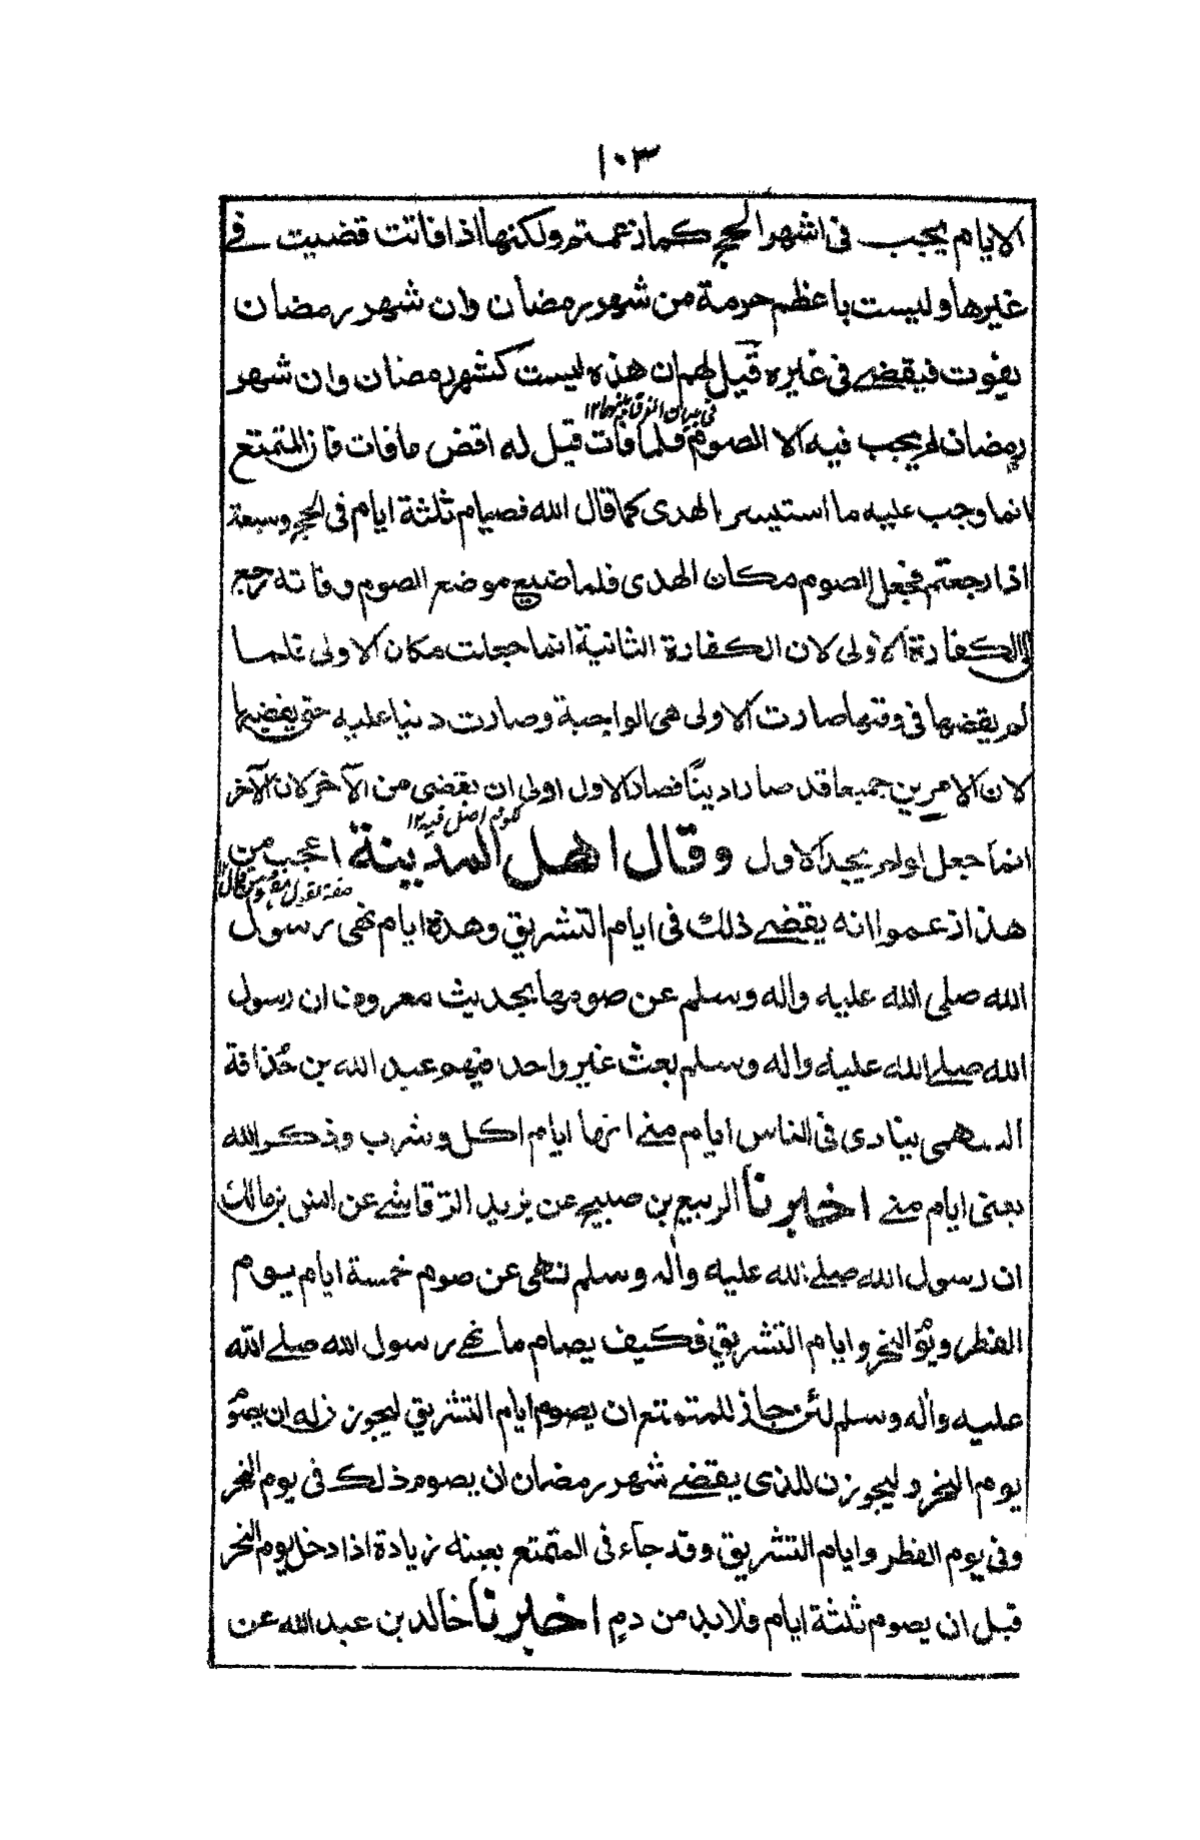 ١٠٣
الايام يجب فى اشهر الحج كما زعمتم ولكنها اذا فاتت قضيت فے
غيرها وليست باعظم حرمة من شهر رمضان وان شهر رمضان
يفوت فيقضے فى غيره قيل لهم ان هذه ليست كشهر رمضان وان شهر
فى بيان الفرق بينهما ١٢
رمضان لم يجب فيه الا الصوم فلما فات قيل له اقض ما فات فان المتمتع
انما وجب عليه ما استيسر الهدى كما قال الله فصيام ثلثة ايام فى الحج وسبعة
اذا رجعتم فجعل الصوم مكان الهدى فلما ضيع موضع الصوم وفاته رجع
الى الكفارة الاولى لان الكفارة الثانية انما جعلت مكان الاولى فلما
لم يقضها فى وقتها صارت الاولى هى الواجبة وصارت دينا عليه حتى يقضيها
لان الامرين جميعا قد صارا دينًا فصار الاول اولى ان يقضى من الآخر لان الآخر
انما جعل لو لم يجد الاول وقال اهل المدينة اعجب من
هذا زعموا انه يقضے ذلك فى ايام التشريق وهذه ايام نهى رسول
الله صلى الله عليه واله وسلم عن صومها بحديث معروف ان رسول
الله صلے الله عليه واله وسلم بعث غير واحد فيهم عبد الله بن حُذافة
السهمى ينادى فى الناس ايام منے انها ايام اكل وشرب وذكر الله
يعنى ايام منے اخبرنا الربيع بن صبيح عن يزيد الرقاشے عن انس بن مالك
ان رسول الله صلے الله عليه واله وسلم نهى عن صوم خمسة ايام يوم
الفطر ويوم النحر وايام التشريق فكيف يصام ما نهے رسول الله صلے الله
عليه واله وسلم لئن جاز للمتمتع ان يصوم ايام التشريق ليجوزن له ان يصوم
يوم النحر وليجوزن للذى يقضے شهر رمضان ان يصوم ذلك فى يوم النحر
وفى يوم الفطر وايام التشريق وقد جاء فى المتمتع بعينه زيادة اذا دخل يوم النحر
قبل ان يصوم ثلثة ايام فلا بد من دمٍ اخبرنا خالد بن عبد الله عن